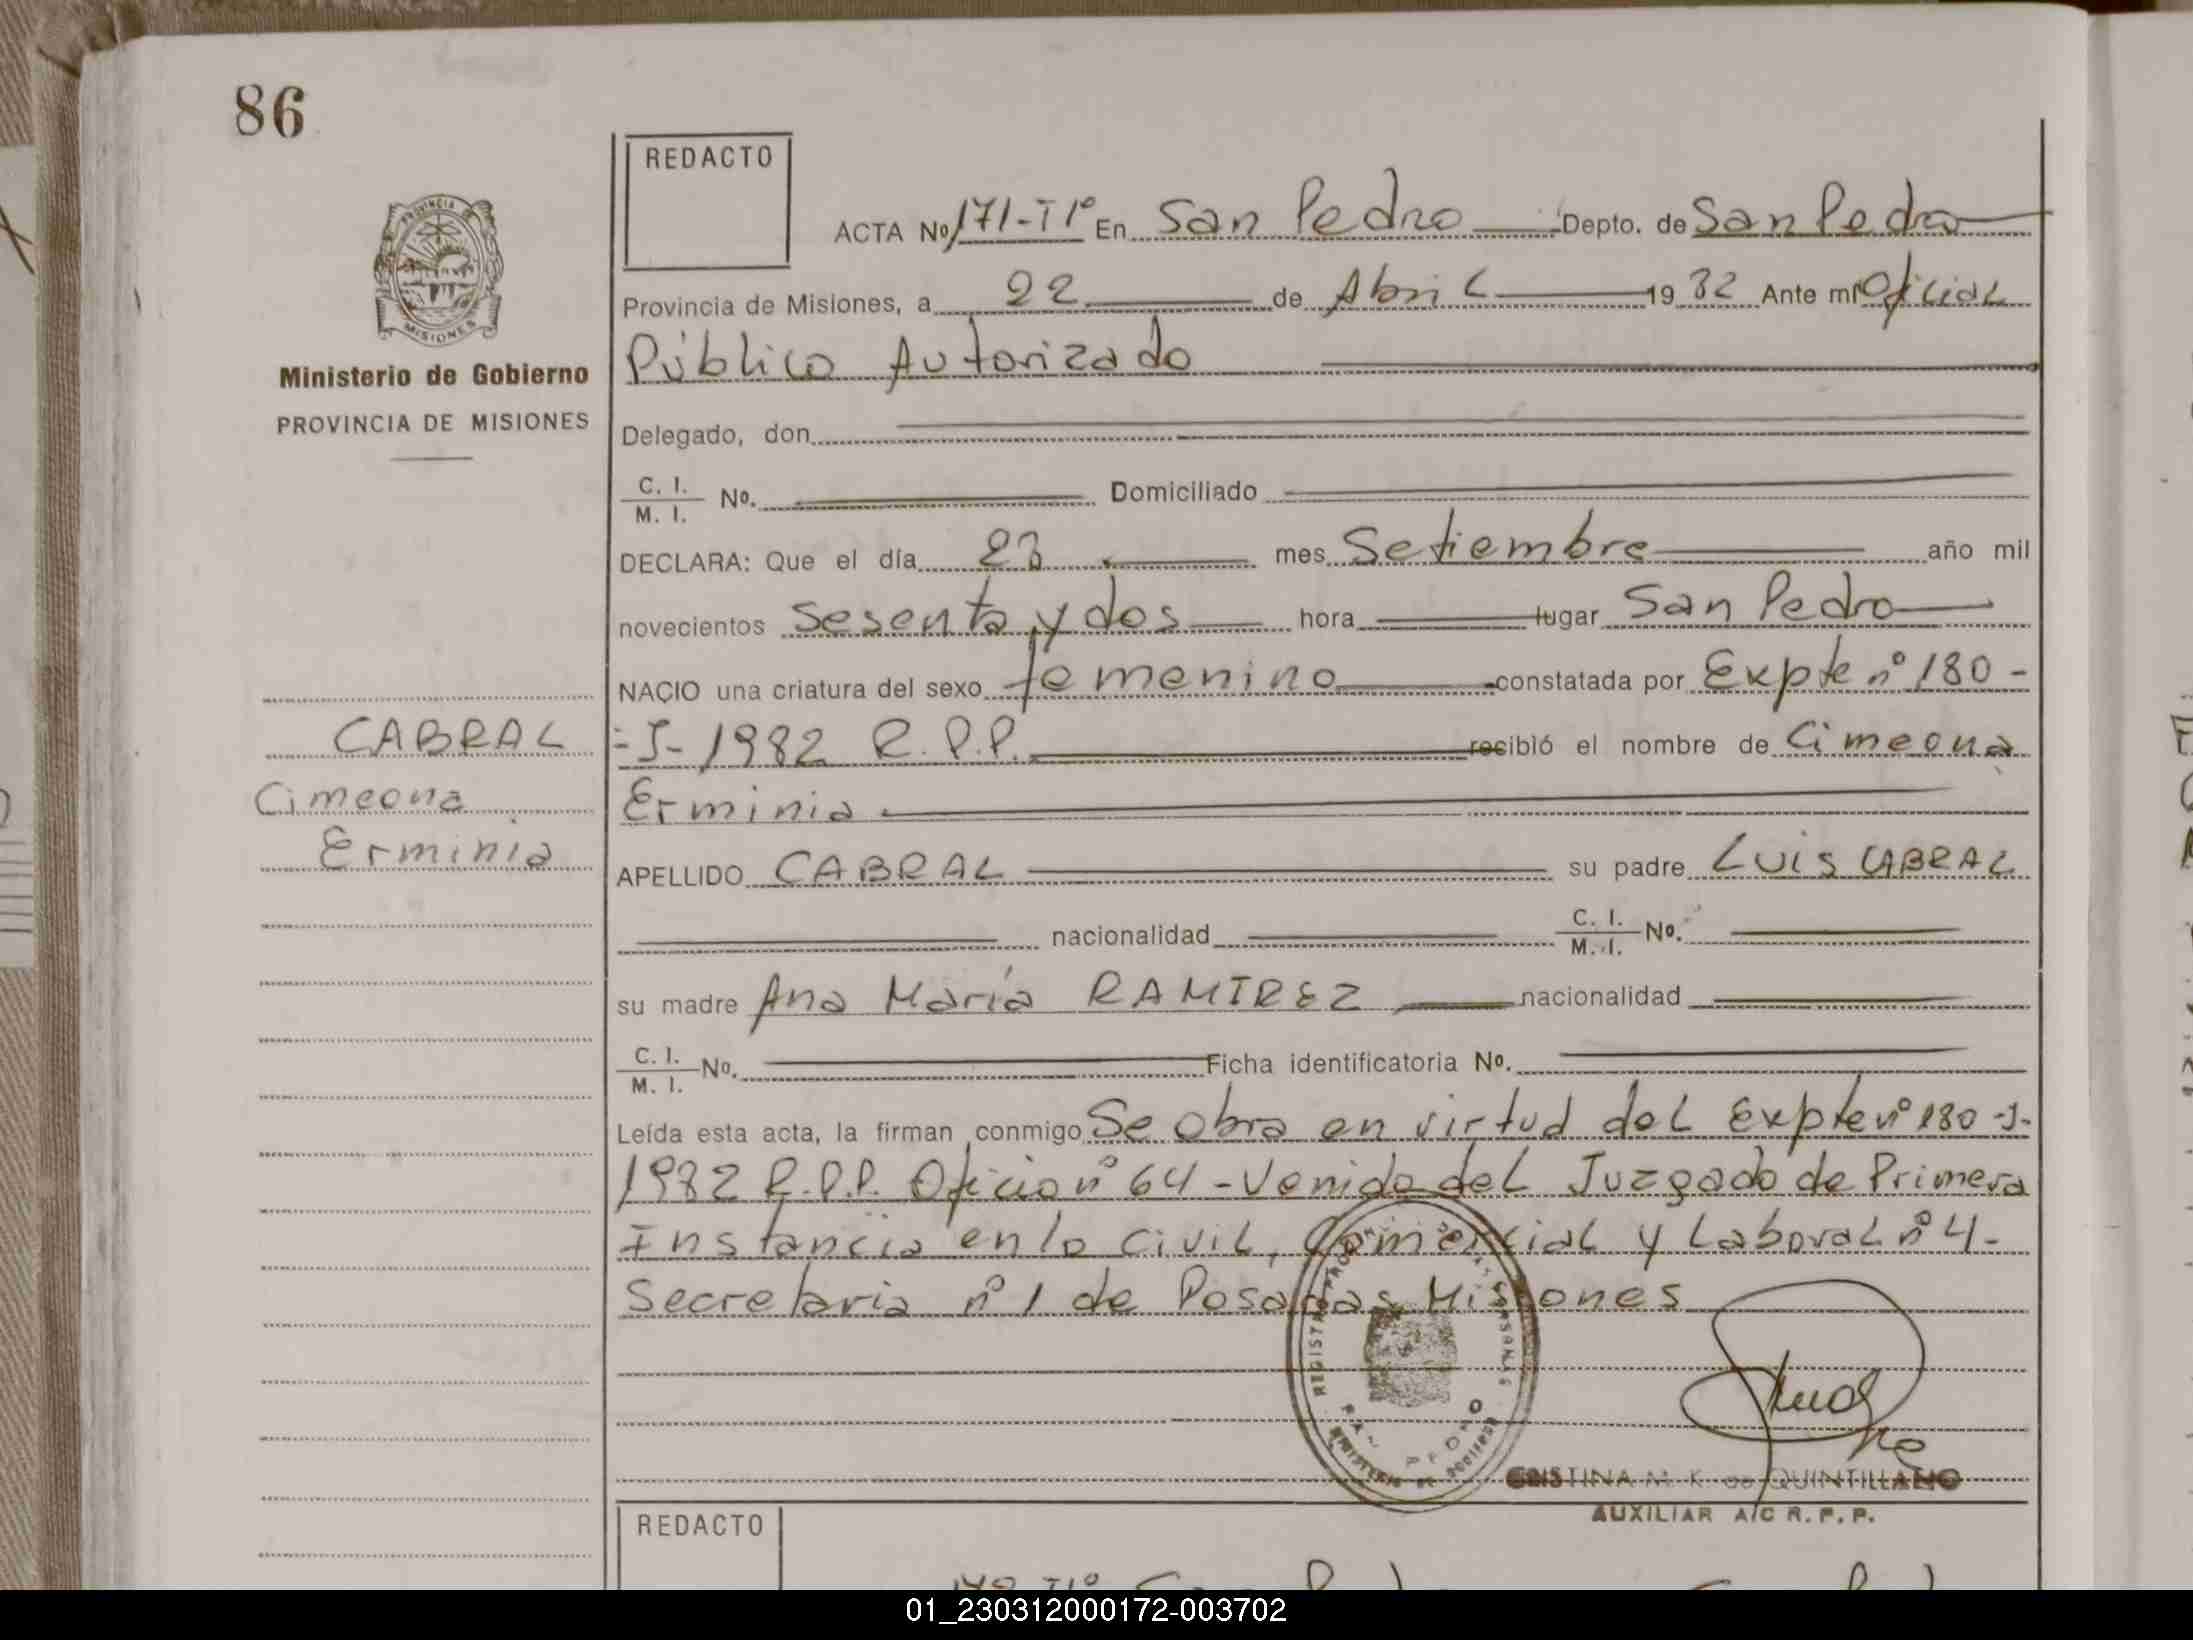 86
REDACTO
ACTA Nº 171-TIº En San Pedro Depto. de San Pedro
PROVINCIA DE
MISIONES
Provincia de Misiones, a 22 de Abril 1982 Ante mí Oficial
Ministerio de Gobierno
Público Autorizado
PROVINCIA DE MISIONES
Delegado, don
C. I.
M. I. Nº. Domiciliado
DECLARA: Que el día 23 mes Setiembre año mil
novecientos sesenta y dos hora lugar San Pedro
NACIO una criatura del sexo femenino constatada por Expte nº 180 -
CABRAL
-J- 1982 R.P.P. recibió el nombre de Cimeona
Cimeona
Erminia
Erminia
APELLIDO CABRAL su padre Luis CABRAL
nacionalidad C. I.
M. I. Nº.
su madre Ana María RAMIREZ nacionalidad
C. I.
M. I. Nº. Ficha identificatoria Nº.
Leída esta acta, la firman conmigo Se obra en virtud del Expte nº 180 -J-
1982 R.P.P. Oficio nº 64 - Venido del Juzgado de Primera
Instancia en lo Civil, Comercial y Laboral nº 4 -
Secretaria nº 1 de Posadas Misiones
SAN PEDRO
MINISTERIO DE GOBIERNO
CRISTINA M. K. de QUINTILLANO
AUXILIAR A/C R. P. P.
REDACTO
01_230312000172-003702